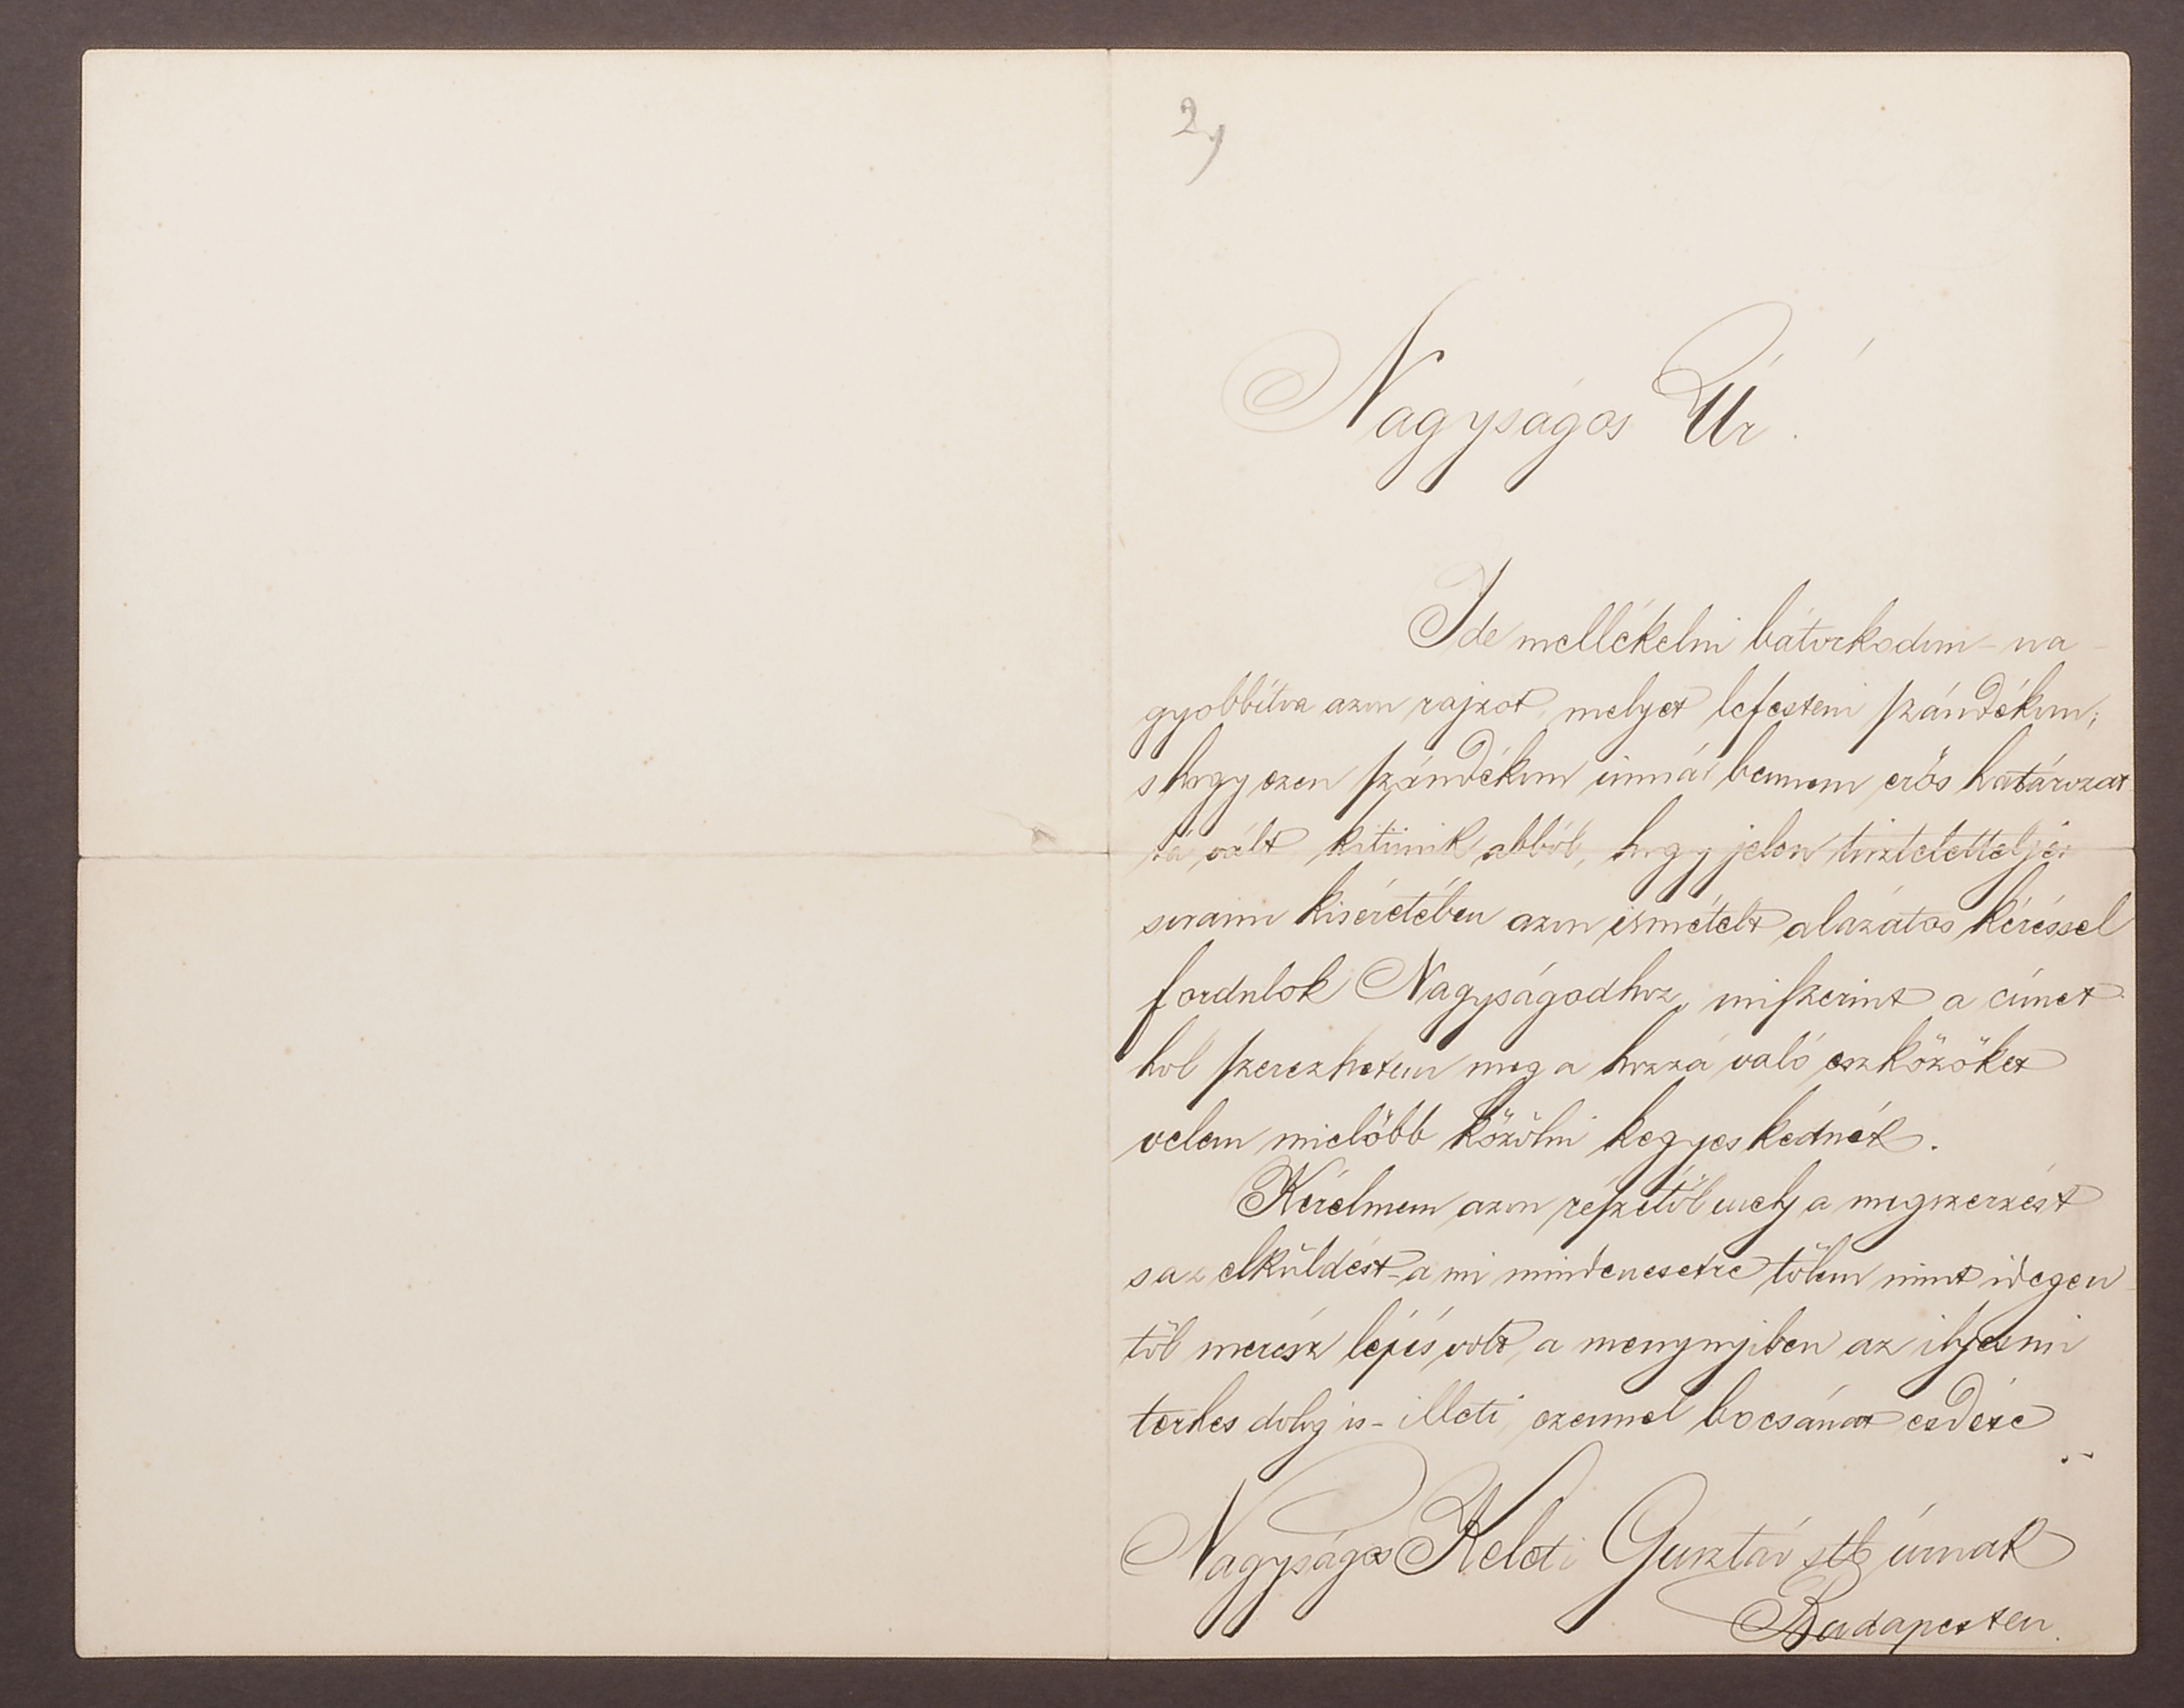 2,
Nagyságos Úr.
Ide mellékelni bátorkodom - na-
gyobbítva azon rajzot, melyet lefesteni szándékom;
s hogy ezen szándékom immár bennem erős határozat
tá vált kitünik abból, hogy jelen tisztelettelje:
soraim kiséretében azon ismételt alázatos kéréssel
fordulok Nagyságodhoz, miszerint a címet
hol szerezhetem meg a hozzá való eszközöket
velem mielöbb közölni kegyeskednék.
Kérelmem azon részétöl mely a megszerzést
s az elküldést - a mi mindenesetre tölem mint idegen
töl merész lépés volt, a mennyiben az ilyesmi
terhes dolog is - illeti, ezennel bocsánat esdése
Nagyságos Keleti Gusztáv stb úrnak
Budapesten.